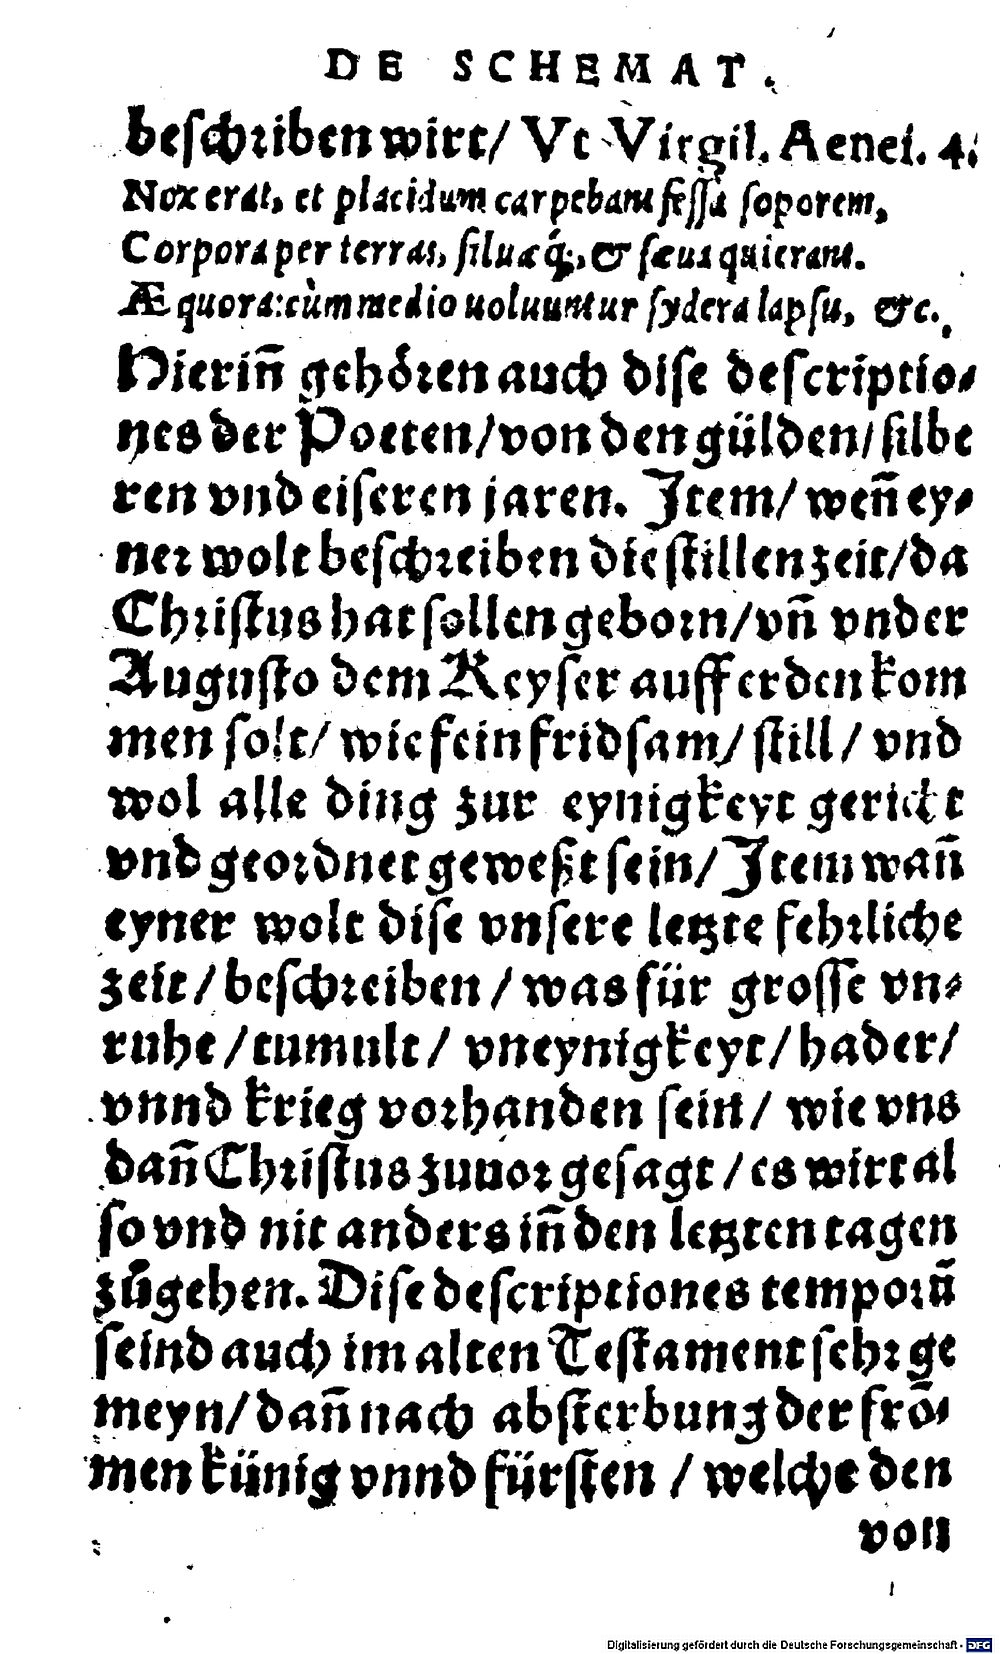 DE SCHEMAT.
beschriben wirt/ Vt Virgil. Aenei. 4.
Nox erat, et placidum carpebant fessa soporem,
Corpora per terras, siluæq́;, & sæua quierant.
Æquora: cùm medio uoluuntur sydera lapsu, &c.
Hierin̄ gehoͤren auch dise descriptio⸗
nes der Poeten/ von den gülden/ silbe
ren vnd eiseren jaren. Item/ wen̄ ey⸗
ner wolt beschreiben die stillen zeit/ da
Christus hat sollen geborn/ vn̄ vnder
Augusto dem Keyser auff erden kom
men solt/ wie fein fridsam/ still/ vnd
wol alle ding zur eynigkeyt gericht
vnd geordnet geweßt sein/ Item wan̄
eyner wolt dise vnsere letzte fehrliche
zeit/ beschreiben/ was für grosse vn⸗
ruhe/ tumult/ vneynigkeyt/ hader/
vnnd krieg vorhanden sein/ wie vns
dan̄ Christus zuuor gesagt/ es wirt al
so vnd nit anders in̄ den letzten tagen
zůgehen. Dise descriptiones temporū
seind auch im alten Testament sehr ge
meyn/ dan̄ nach absterbung der frō⸗
men künig vnnd fürsten/ welche den
von
Digitalisierung gefördert durch die Deutsche Forschungsgemeinschaft - DFG